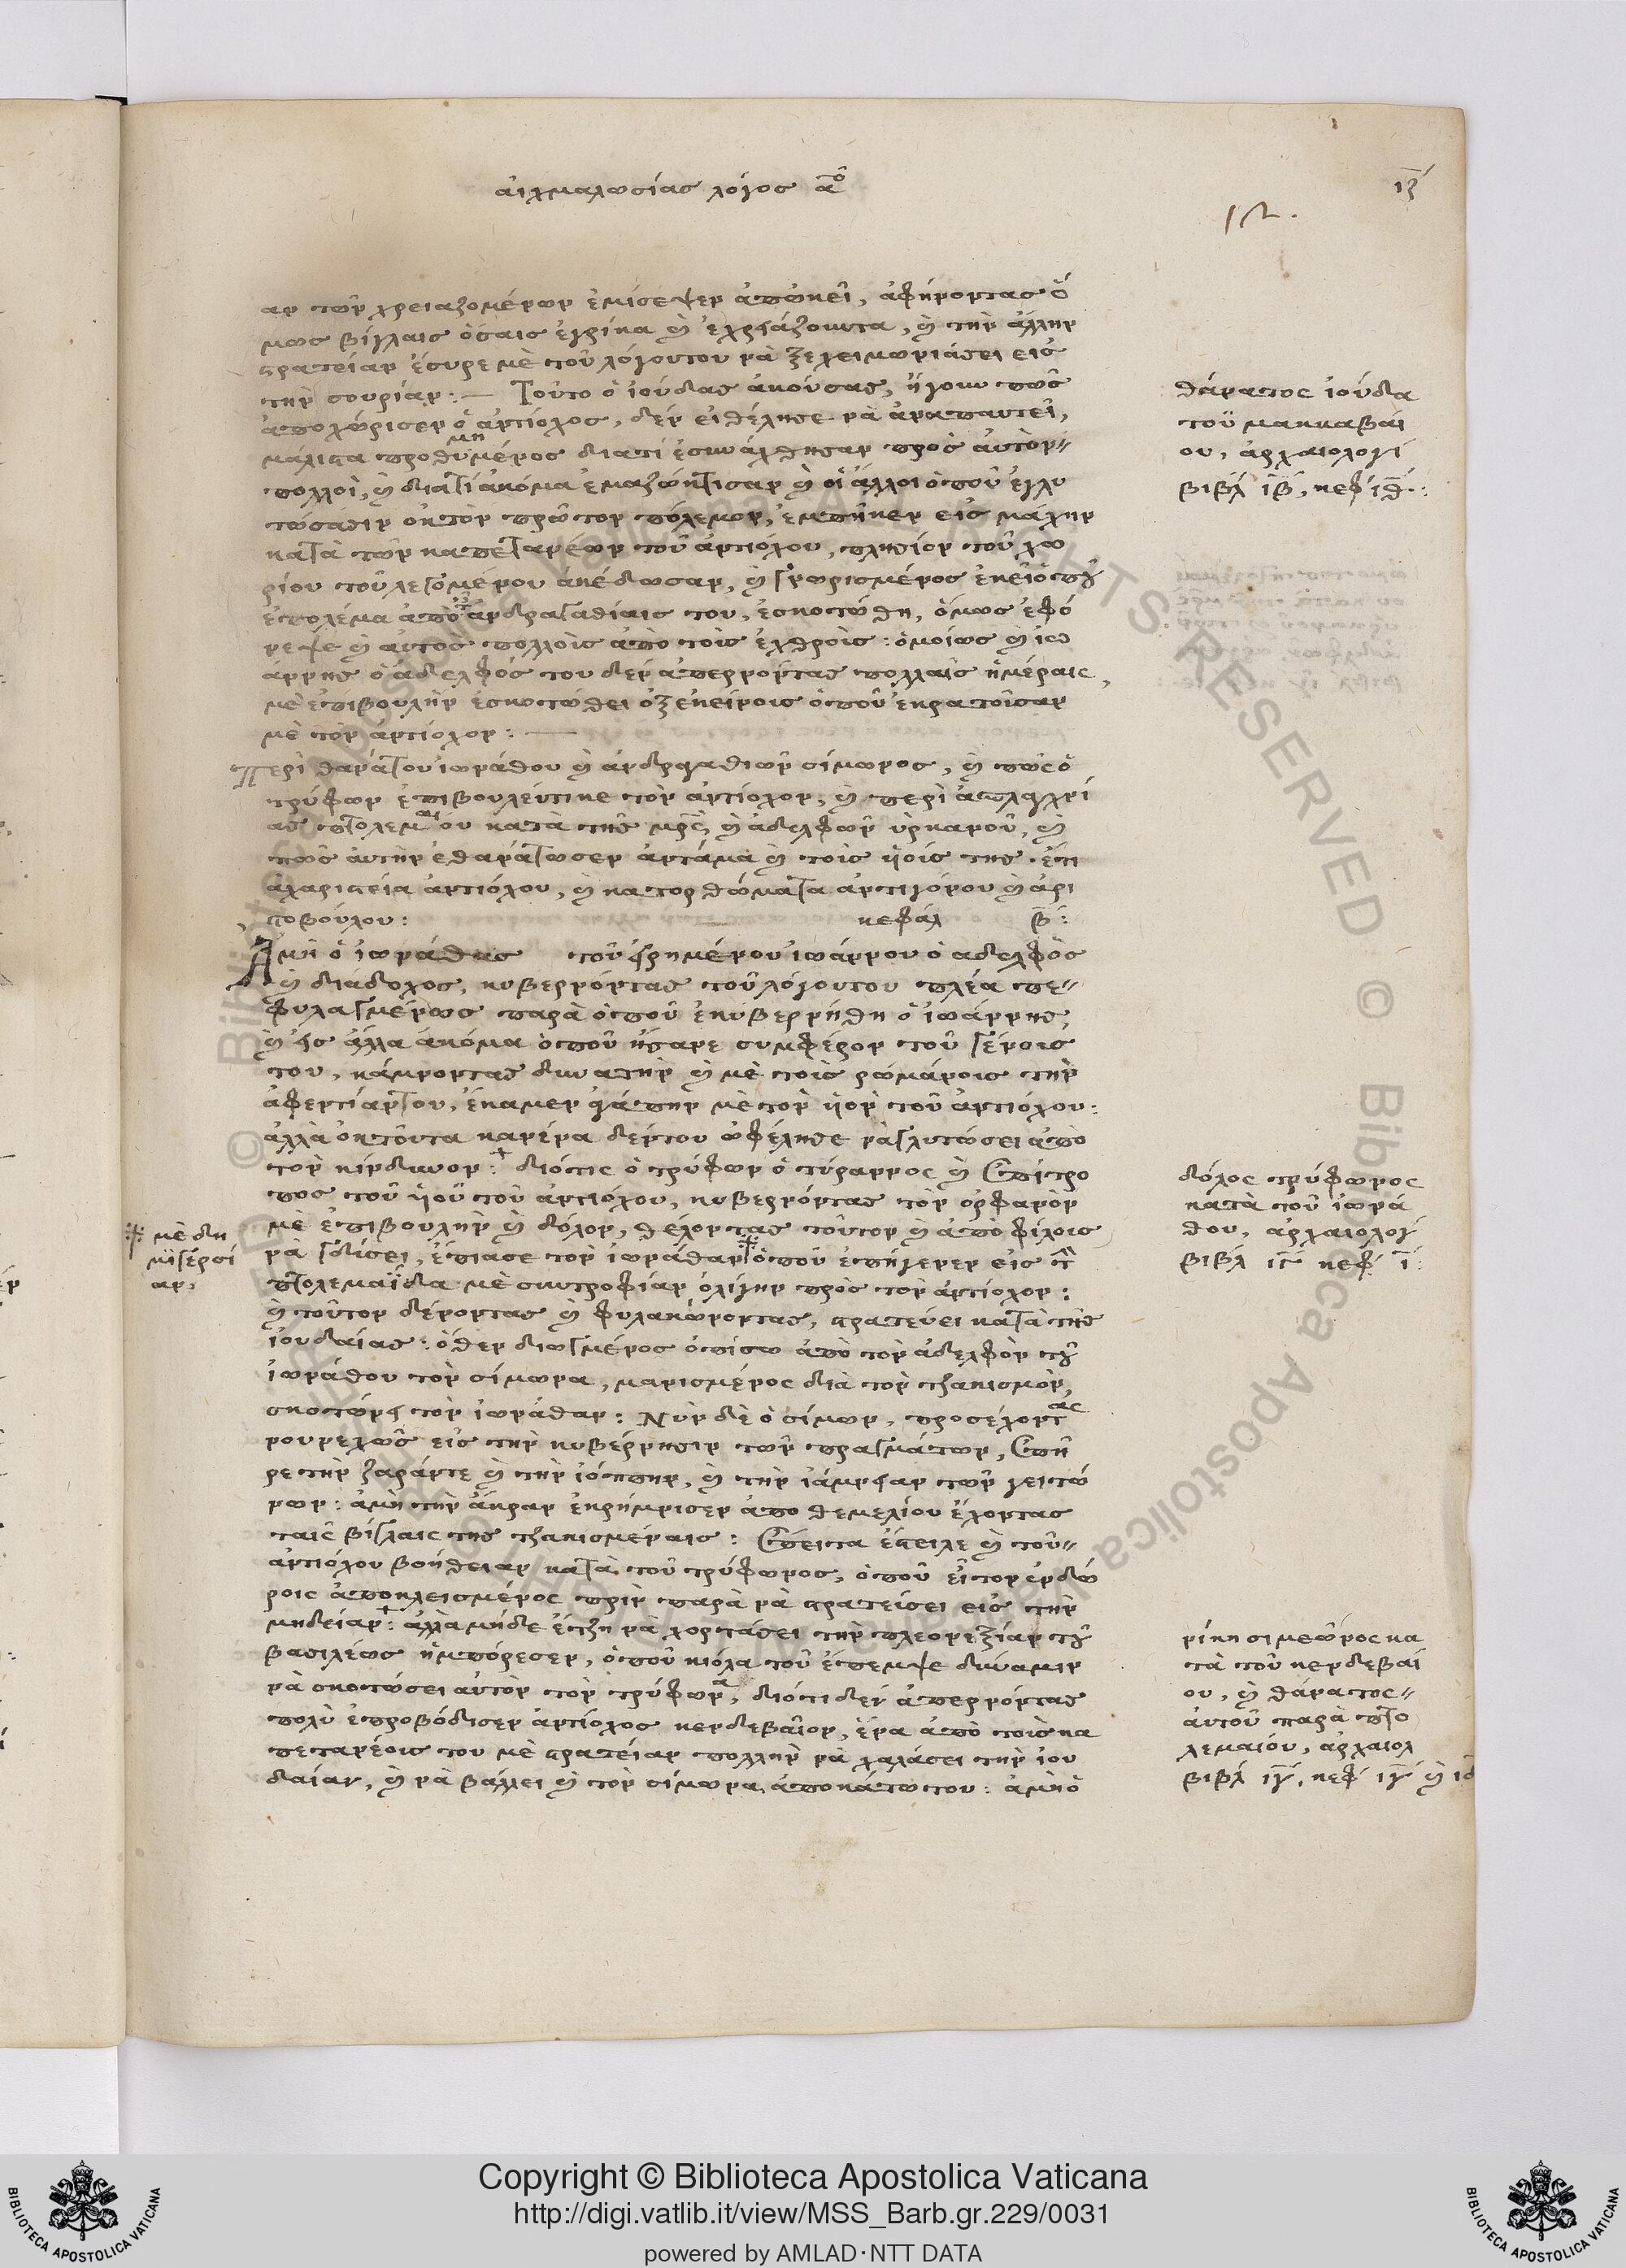 αἰχμαλωσίας λόγος αος
ιζ
17.
αν τῶν χρειαζομένων ἐμίσεψεν ἀπῶκεῖ, ἀφήνοντας ὅ
μως βίγλαις ὅσαις ἐγρίκα καὶ ἐχρειάζουντα, καὶ τὴν ἄλλην
στρατείαν ἔσυρε μὲ τοῦ λόγουτου νὰ ξεχειμωνιάσει εἰς
τὴν συρίαν: — Τοῦτο ὁ ἰούδας ἀκούσας, ἤγουν πῶς
ἀποχώρισεν ὁ ἀντίοχος, δὲν εἰθέλησε νὰ ἀναπαυτεῖ,
μάλιστα προθυμημένος διατί ἐσυνάχθησαν πρὸς αὐτὸν
πολλοὶ, καὶ διατί ἀκόμα ἐμαζώκτισαν καὶ οἱ ἄλλοι ὁποῦ ἐγλυ
τώσασιν ὀκτὸν πρῶτον πόλεμον, ἐμπῆκεν εἰς μάχην
κατὰ τῶν καπεταναίων τοῦ ἀντιόχου, πλησίον τοῦ χω
ρίου τοῦ λεγομένου ἀκέδωσαν, καὶ γνωρισμένος ἐκεῖ ὁποῦ
ἐπολέμα ἀπὸ ταῖς ἀνδραγαθίαις του, ἐσκοτώθη, ὅμως ἐφό
νεψε καὶ αὐτὸς πολλοὺς ἀπὸ τοὺς ἐχθροὺς: ὁμοίως καὶ ἰω
άννης ὁ ἀδελφός του δὲν ἀπερνόντας πολλαῖς ἡμέραις,
μὲ ἐπιβουλὴν ἐσκοτώθει ὀξ ἐκείνους ὁποῦ ἐκρατοῦσαν
μὲ τὸν ἀντίοχον: —
Περὶ θανάτου ἰωνάθου καὶ ἀνδραγαθιῶν σίμωνος, καὶ πῶς ὁ
τρύφων ἐπιβουλεύτικε τὸν ἀντίοχον, καὶ περὶ ἀπανθρωπί
ας πτολεμαίου κατὰ τῆς μρὸς, καὶ ἀδελφῶν ὑρκανοῦ, καὶ
πῶς αὐτὴν ἐθανάτωσεν ἀντάμα καὶ τοὺς ὑιούς της. ἔτι
ἀχαριστεία ἀντιόχου, καὶ κατορθώματα ἀντιγόνου καὶ ἀρι
στοβούλου: κεφάλ β:
Ἀμὴ ὁ ἰωνάθας τοῦ εἰρημένου ἰωάννου ὁ ἀδελφὸς
καὶ διάδοχος, κυβερνόντας τοῦ λόγουτου πλέα πε
φυλαγμένως παρὰ ὁποῦ ἐκυβερνήθη ὁ ἰωάννης,
καὶ εἰς ἄλλα ἀκόμα ὁποῦ ἤσανε συμφέρον τοῦ γένους
του, κάμνοντας δυνατὴν καὶ μὲ τοὺς ρωμάνους τὴν
ἀφεντίαντου, ἔκαμεν ἀγάπην μὲ τὸν ὑιὸν τοῦ ἀντιόχου:
ἀλλὰ ὀκτοῦντα κανένα δέντου ὠφέλησε νὰ γλυτώσει ἀπὸ
τὸν κίνδυνον: διότις ὁ τρύφων ὁ τύραννος καὶ ἐπίτρο
πος τοῦ ὑιοῦ τοῦ ἀντιόχου, κυβερνόντας τὸν ὀρφανὸν
μὲ ἐπιβουλὴν καὶ δόλον, θέλοντας τοῦτον καὶ ἀπὸ φίλους
νὰ γδύσει, ἔπιασε τὸν ἰωνάθαν ὁποῦ ἐπήγενεν εἰς τὴν
πτολεμαΐδα μὲ συντροφίαν ὀλίγην πρὸς τὸν ἀντίοχον:
καὶ τοῦτον δένοντας καὶ φυλακώνοντας, στρατεύει κατὰ τῆς
ἰουδαίας: ὅθεν διωγμένος ὀπίσω ἀπὸ τὸν ἀδελφὸν τοῦ
ἰωνάθου τὸν σίμωνα, μανισμένος διὰ τὸν τζακισμὸν,
σκοτώνει τὸν ἰωνάθαν: Νῦν δὲ ὁ σίμων, προσέχοντας
νουνεχῶς εἰς τὴν κυβέρνησιν τῶν πραγμάτων, ἐπῆ
ρε τὴν ζαράντε καὶ τὴν ἰόππην, καὶ τὴν ἰάμνειαν τῶν γειτώ
νων: ἀμὴ τὴν ἄκραν ἐκρήμνισεν ἀπὸ θεμελίου ἔχοντας
ταῖς βίγλαις της τζακισμέναις: ἔπειτα ἔστειλε καὶ τοῦ
ἀντιόχου βοήθειαν κατὰ τοῦ τρύφωνος, ὁποῦ εἶτον ἐνδώ
ροις ἀποκλεισμένος πρὶν παρὰ νὰ στρατεύσει εἰς τὴν
μηδείαν: ἀλλὰ μήδε ἔτζη νὰ χορτάσει τὴν πλεονεξίαν τοῦ
βασιλέως ἠμπόρεσεν, ὁποῦ κιόλα τοῦ ἔπεμψε δύναμιν
νὰ σκοτώσει αὐτὸν τὸν τρύφωνα, διότι δὲν ἀπερνόντας
πολὺ ἐπροβόδισεν ἀντίοχος κενδεβαῖον, ἕνα ἀπὸ τοὺς κα
πεταναίους του μὲ στρατείαν πολλὴν νὰ χαλάσει τὴν ἰου
δαίαν, καὶ νὰ βάλλει καὶ τὸν σίμωνα ἀποκάτω του: ἀμὴ ὁ
θάνατος ἰούδα
τοῦ μακκαβαί
ου, ἀρχαιολογί
βιβλ ιβ, κεφ ιθ:
δόλος τρύφωνος
κατὰ τοῦ ἰωνά
θου, ἀρχαιολογ
βιβλ ιγ κεφ ι:
μὲ δη
μιγερσί
αν,
νίκη σιμεῶνος κα
τὰ τοῦ κενδεβαί
ου, καὶ θάνατος
αὐτοῦ παρὰ πτο
λεμαίου, ἀρχαιολ
βιβλ ιγ, κεφ ιγ καὶ ιδ
Copyright © Biblioteca Apostolica Vaticana
http://digi.vatlib.it/view/MSS_Barb.gr.229/0031
powered by AMLAD·NTT DATA
BIBLIOTECA APOSTOLICA VATICANA
BIBLIOTECA APOSTOLICA VATICANA